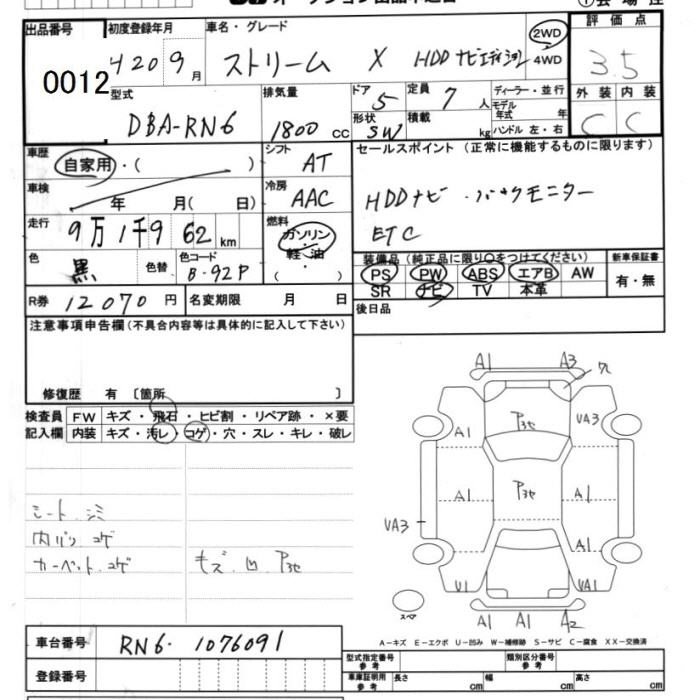 出品番号 初度登録年月 車名・グレード 評価点
0012 H20 9月 ストリーム X HDDナビエディション 2WD 4WD 3.5
型式 排気量 ドア 5 定員 7人 ディーラー・並行 外装 内装
DBA-RN6 1800cc 形状 SW 積載 kg モデル年式 年 ハンドル 左・右 C C
車歴 自家用・( ) シフト AT セールスポイント (正常に機能するものに限ります)
車検 年 月( 日) 冷房 AAC HDDナビ ・バックモニター
走行 9万1千962km 燃料 ガソリン・軽油・( ) ETC
色 黒 色替 色コード B-92P 装備品 (純正品に限り○をつけてください) 新車保証書
PS PW ABS エアB AW 有・無
R券 12070円 名変期限 月 日 SR ナビ TV 本革
注意事項申告欄(不具合内容等は具体的に記入して下さい) 後日品
修復歴 有 〔箇所 〕
検査員 FW キズ・飛石・ヒビ割・リペア跡・×要
記入欄 内装 キズ・汚レ・コゲ・穴・スレ・キレ・破レ
シート シミ
内バリ コゲ
カーペット コゲ キズ 凹
A1 A3
A1 VA3
A1 A1
VA3 A1
U1 VA1
スペア A1 A1 A2
A-キズ E-エクボ U-凹み W-補修跡 S-サビ C-腐食 XX-交換済
車台番号 RN6-1076091
登録番号
型式指定番号 参考 類別区分番号 参考
車庫証明用 参考 長さ cm 幅 cm 高さ cm